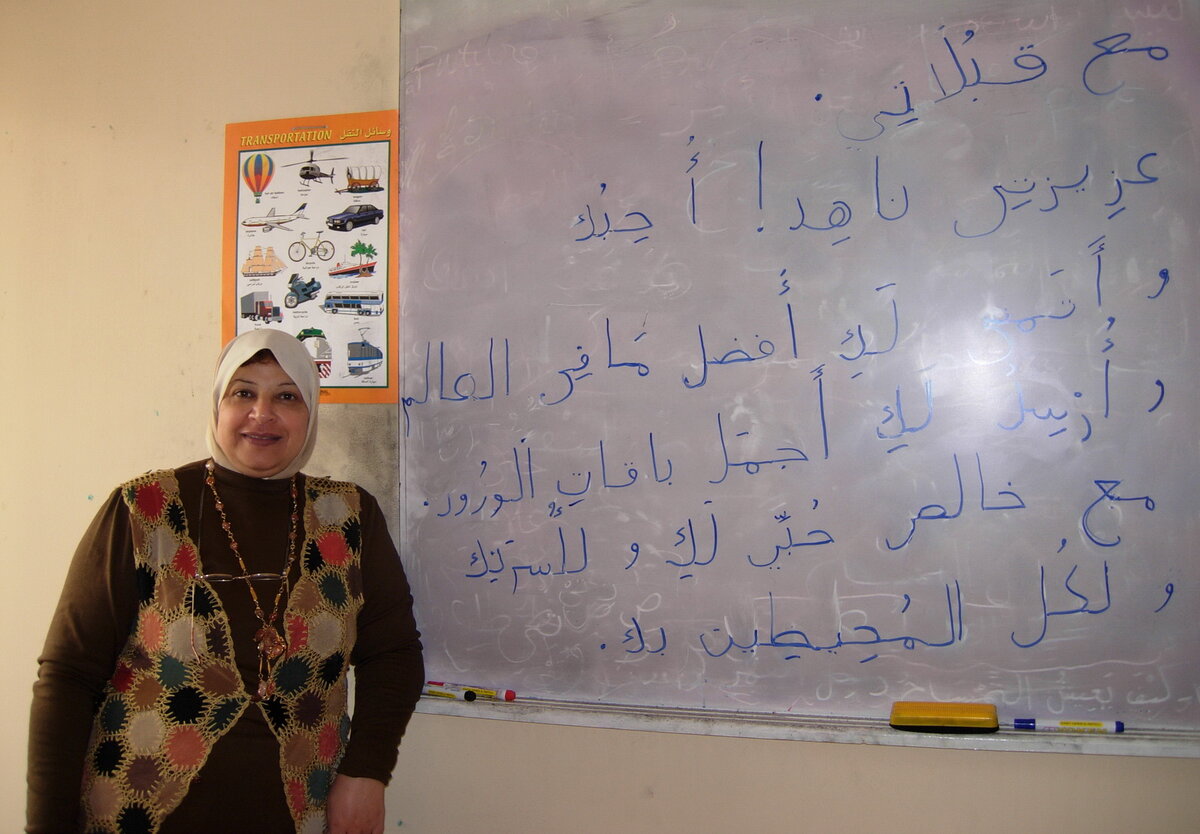 TRANSPORTATION وسائل النقل
مع قبُلاَتي.
عزِيزتي ناهِد! أُ حِبُك
و أَتمَنى لَكِ أَفضل مَافي العالم
و أُرْسِلُ لَكِ أَجمَل باقاتِ الوُرُود.
مع خالص حُبِّي لَكِ و لأُسرَتِك
و لكُل المُحِيطِين بك.